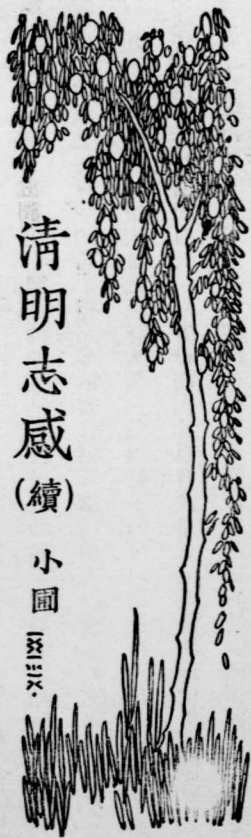 清明志感(續)
小圃